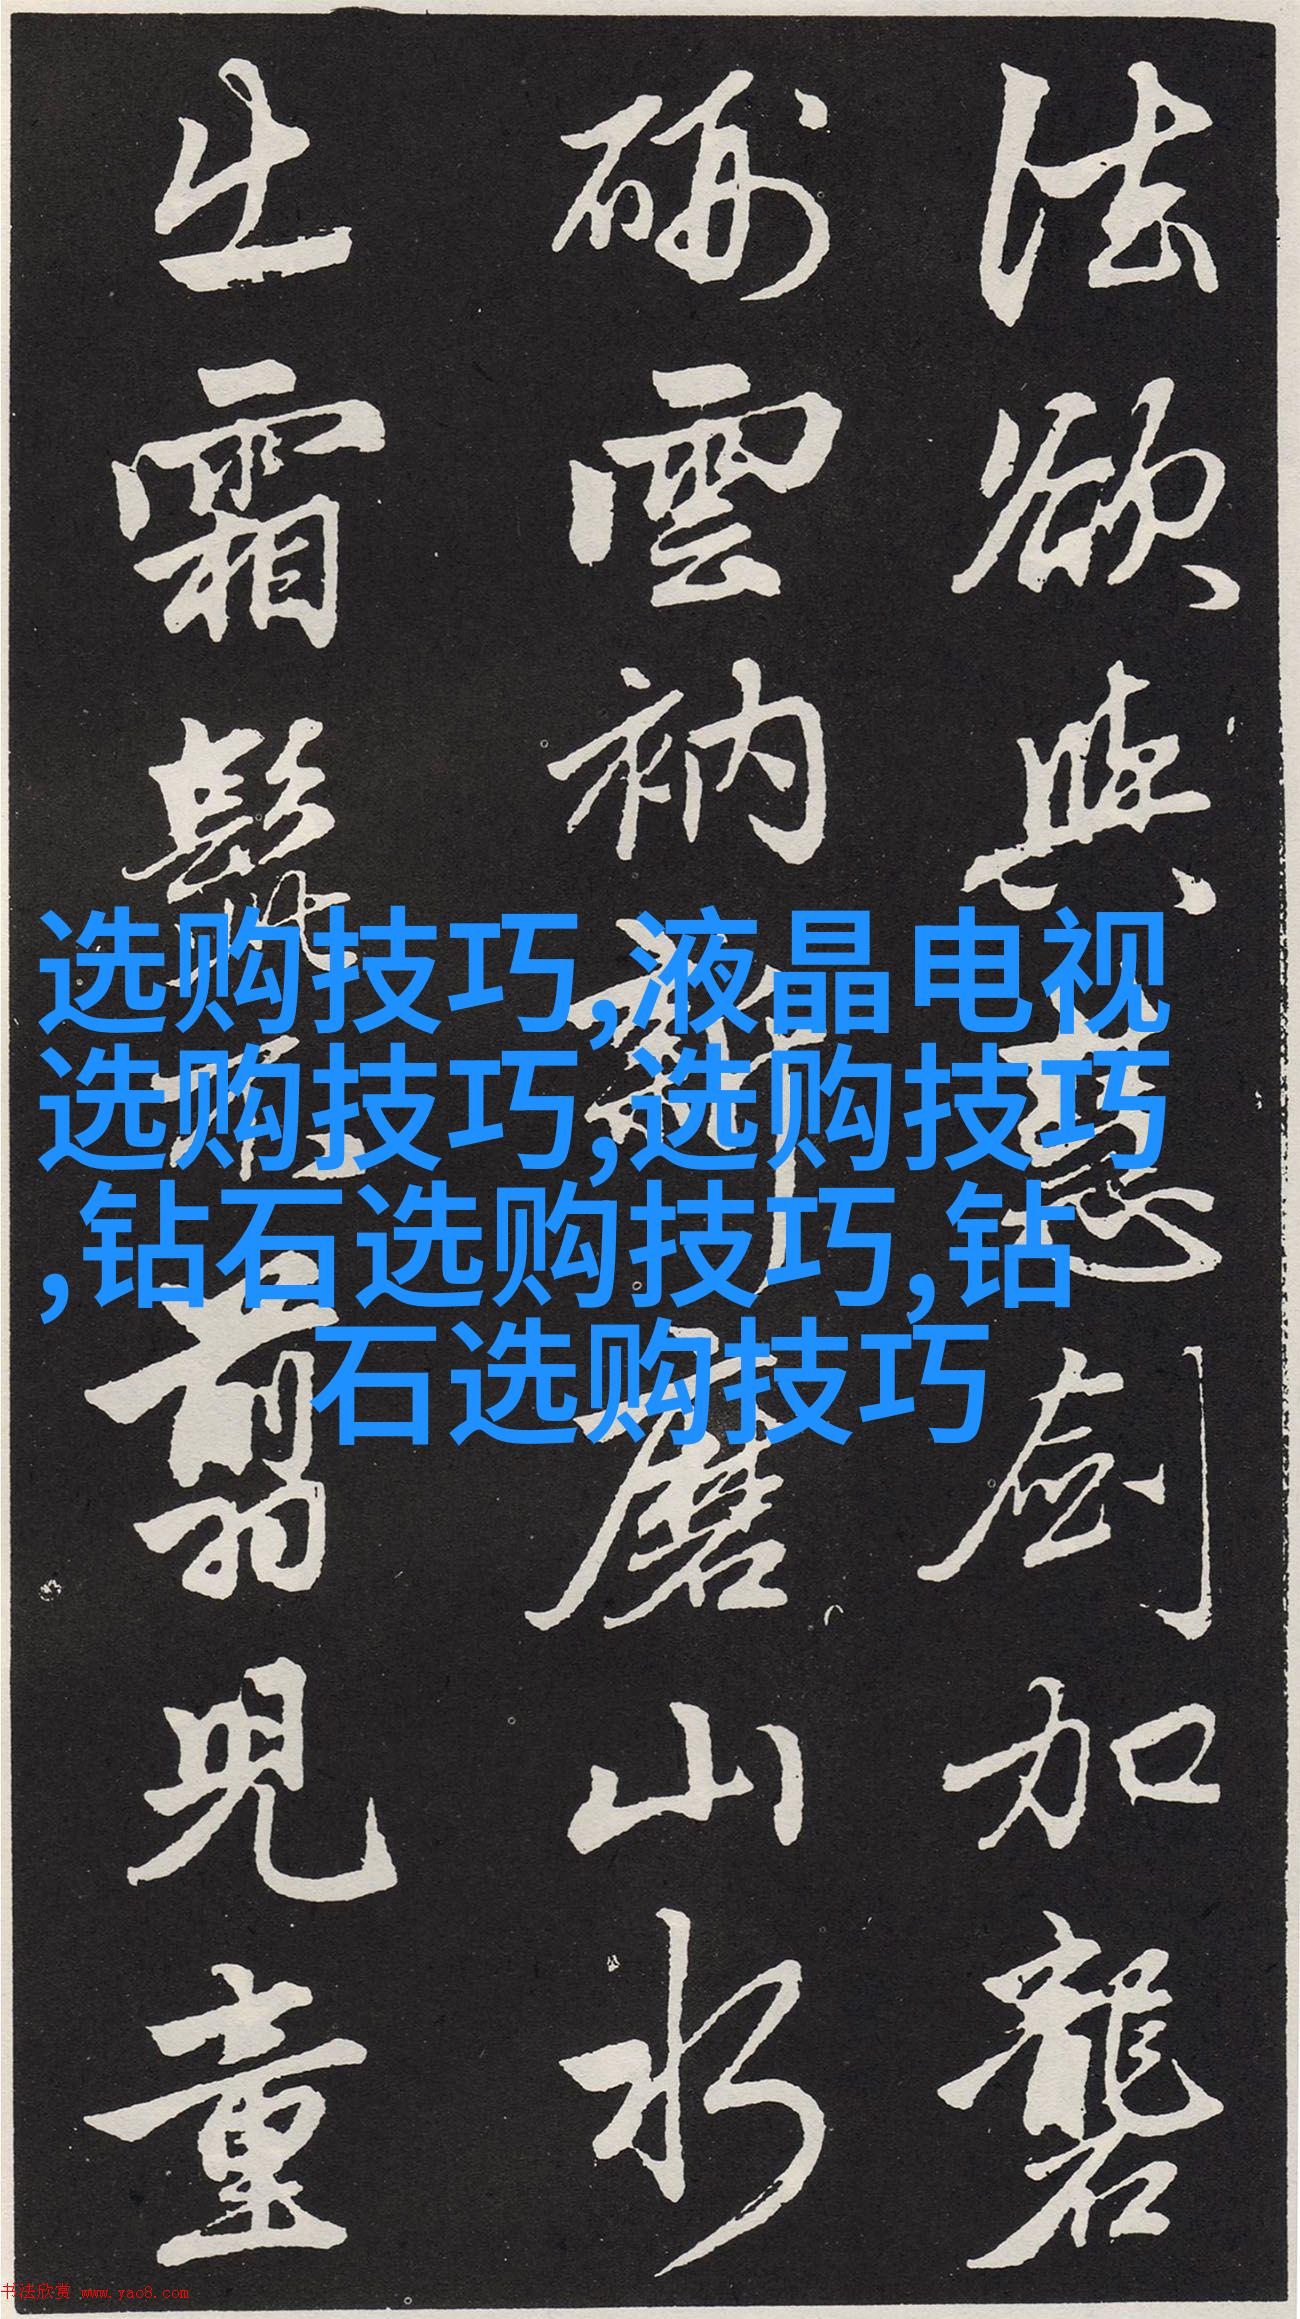 法欲與慧劍加礱
硎雲衲新磨山水
出霜髭剪兒童
选购技巧,液晶电视
选购技巧,选购技巧
,钻石选购技巧,钻
石选购技巧
书法欣赏 www.yac8.com